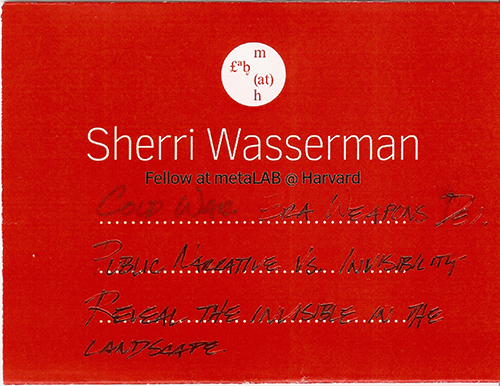 m
£ab (at)
h
Sherri Wasserman
Fellow at metaLAB @ Harvard
COLD WAR ERA WEAPONS DEV.
PUBLIC NARRATIVE VS. INVISIBILITY
REVEAL THE INVISIBLE IN THE
LANDSCAPE